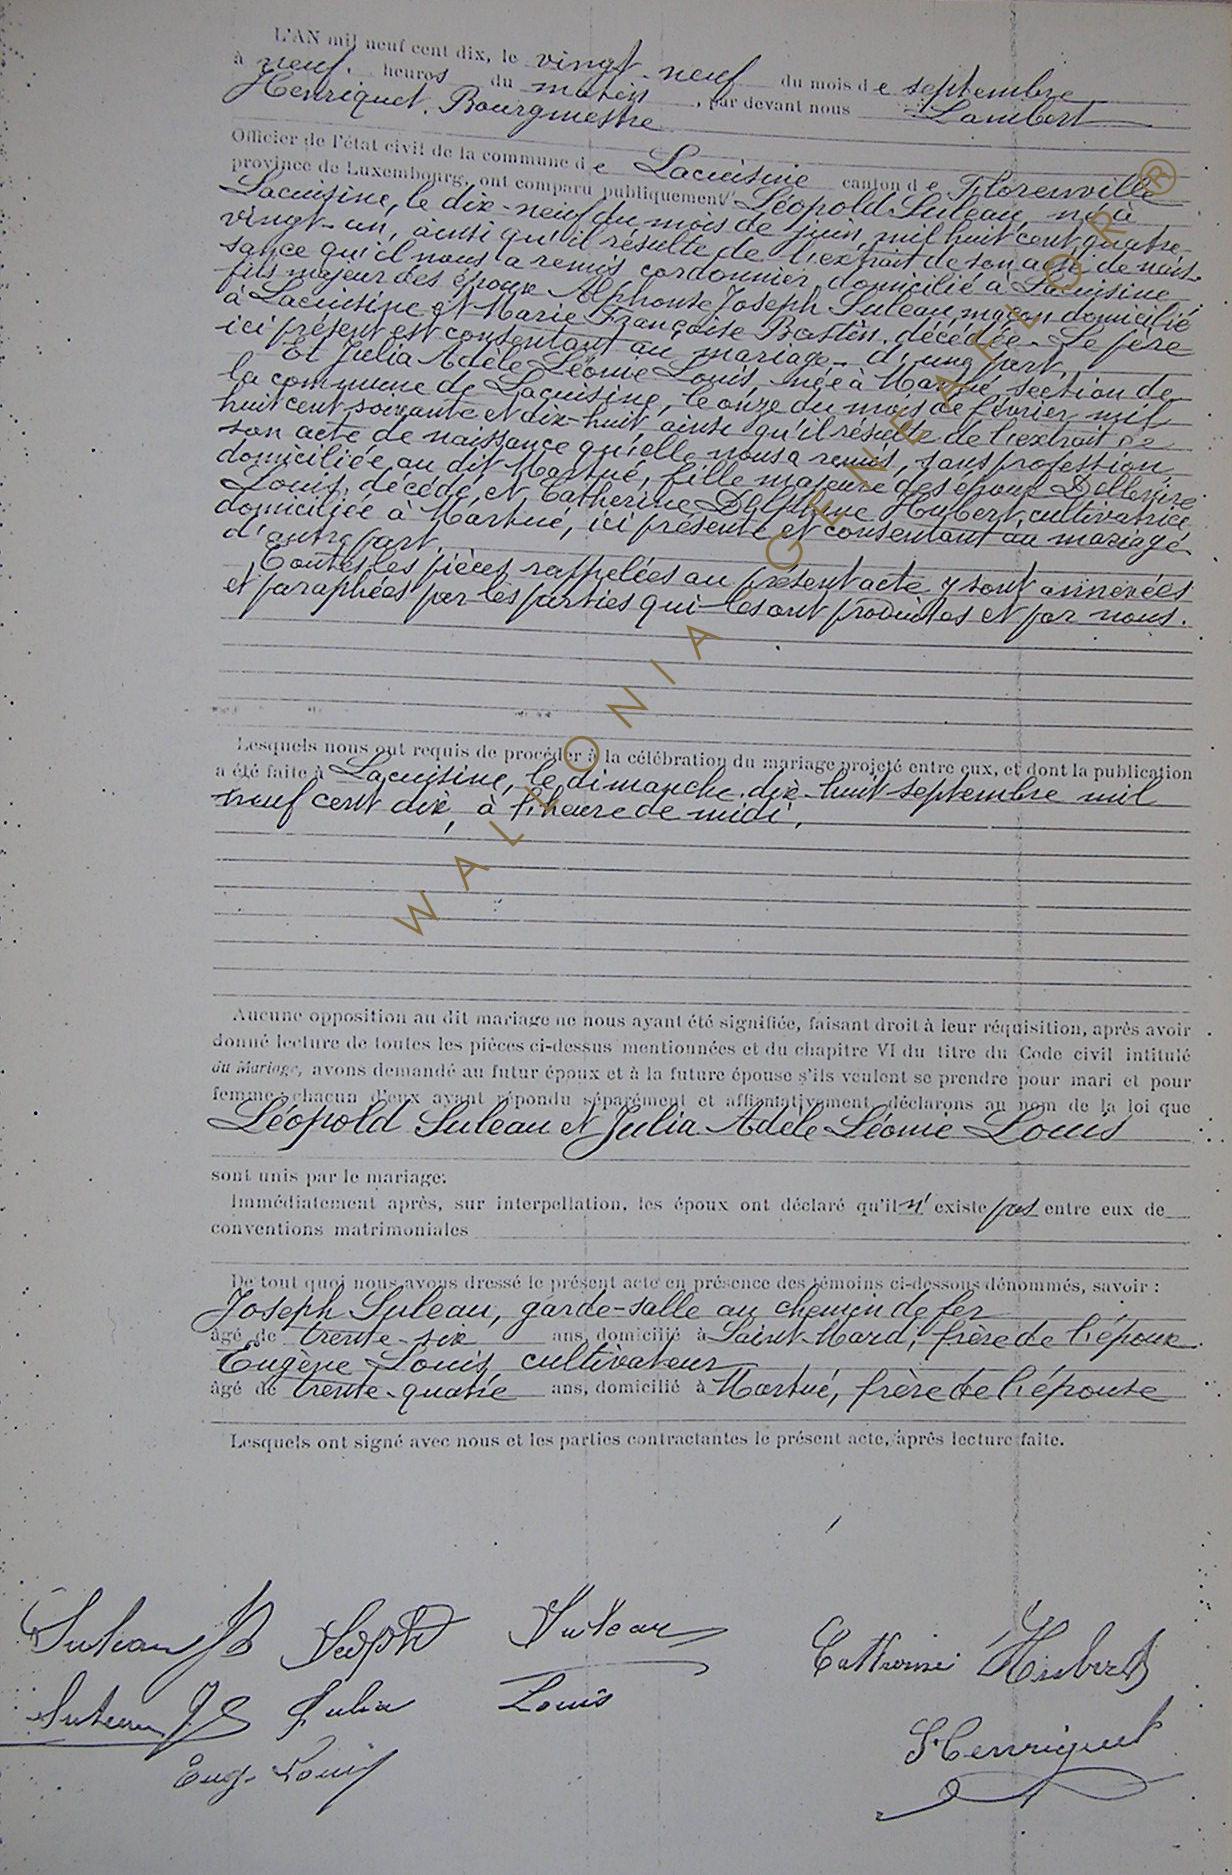 L'AN mil neuf cent dix, le vingt-neuf du mois de septembre
à neuf heures du matin, par devant nous Lambert
Henriquet, Bourgmestre
Officier de l'état civil de la commune de Lacuisine canton de Florenville
province de Luxembourg, ont comparu publiquement Léopold Suleau, né à
Lacuisine, le dix-neuf du mois de juin mil huit cent quatre
vingt-un, ainsi qu'il résulte de l'extrait de son acte de nais-
sance qu'il nous a remis, cordonnier, domicilié à Lacuisine
fils majeur des époux Alphonse Joseph Suleau, maçon domicilié
à Lacuisine et Marie Françoise Bastin, décédée. Le père
ici présent est consentant au mariage, d'une part,
Et Julia Adèle Léonie Louis, née à Martué, section de
la commune de Lacuisine, le onze du mois de février mil
huit cent soixante et dix-huit ainsi qu'il résulte de l'extrait de
son acte de naissance qu'elle nous a remis, sans profession
domiciliée au dit Martué, fille majeure des époux
Louis, décédé et Catherine Delphine Hubert, cultivatrice
domiciliée à Martué, ici présente et consentant au mariage
d'autre part.
Toutes les pièces rappelées au présent acte y sont annexées
et paraphées par les parties qui les ont produites et par nous.
Lesquels nous ont requis de procéder à la célébration du mariage projeté entre eux, et dont la publication
a été faite à Lacuisine, le dimanche dix-huit septembre mil
neuf cent dix, à l'heure de midi,
Aucune opposition au dit mariage ne nous ayant été signifiée, faisant droit à leur réquisition, après avoir
donné lecture de toutes les pièces ci-dessus mentionnées et du chapitre VI du titre du Code civil intitulé
du Mariage, avons demandé au futur époux et à la future épouse s'ils veulent se prendre pour mari et pour
femme, chacun d'eux ayant répondu séparément et affirmativement, déclarons au nom de la loi que
Léopold Suleau et Julia Adèle Léonie Louis
sont unis par le mariage;
Immédiatement après, sur interpellation, les époux ont déclaré qu'il n'existe pas entre eux de
conventions matrimoniales
De tout quoi nous avons dressé le présent acte en présence des témoins ci-dessous dénommés, savoir :
Joseph Suleau, garde-salle au chemin de fer
âgé de trente-six ans, domicilié à Saint-Mard, frère de l'époux
Eugène Louis, cultivateur
âgé de trente-quatre ans, domicilié à Martué, frère de l'épouse
Lesquels ont signé avec nous et les parties contractantes le présent acte, après lecture faite.
Suleau Joseph Suleau Catherine Hubert
Suleau Julia Louis
Eug. Louis
Henriquet
WALLONIA GENEALOR ®